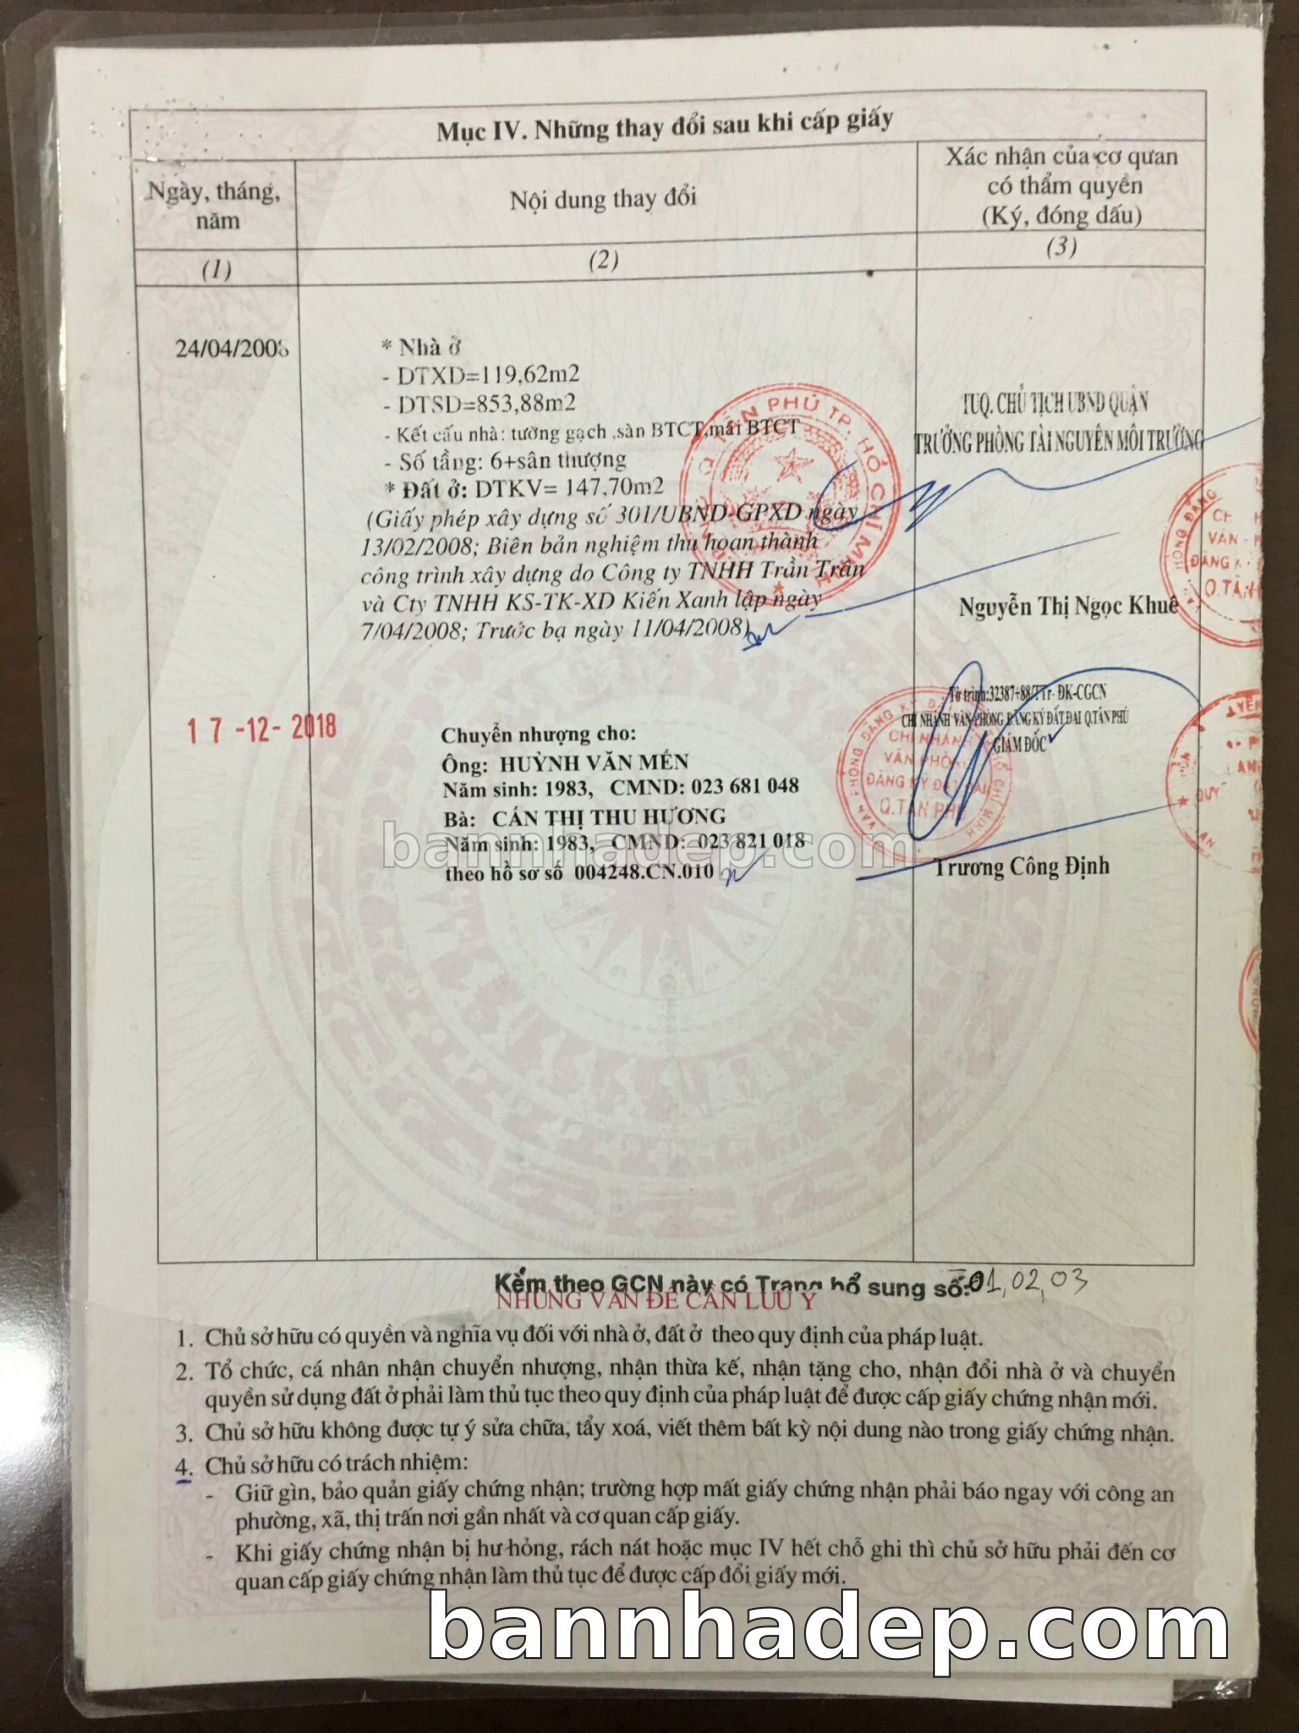 Mục IV. Những thay đổi sau khi cấp giấy
Ngày, tháng,
năm
Nội dung thay đổi
Xác nhận của cơ quan
có thẩm quyền
(Ký, đóng dấu)
(1)
(2)
(3)
24/04/2008
* Nhà ở
- DTXD=119,62m2
- DTSD=853,88m2
- Kết cấu nhà: tường gạch ,sàn BTCT,mái BTCT
- Số tầng: 6+sân thượng
* Đất ở: DTKV= 147,70m2
(Giấy phép xây dựng số 301/UBND-GPXD ngày
13/02/2008; Biên bản nghiệm thu hoàn thành
công trình xây dựng do Công ty TNHH Trần Trần
và Cty TNHH KS-TK-XD Kiến Xanh lập ngày
7/04/2008; Trước bạ ngày 11/04/2008)
TUQ. CHỦ TỊCH UBND QUẬN
TRƯỞNG PHÒNG TÀI NGUYÊN MÔI TRƯỜNG
Q. TÂN PHÚ TP. HỒ CHÍ MINH
Nguyễn Thị Ngọc Khuê
17-12-2018
Chuyển nhượng cho:
Ông: HUỲNH VĂN MÉN
Năm sinh: 1983, CMND: 023 681 048
Bà: CÁN THỊ THU HƯƠNG
Năm sinh: 1983, CMND: 023 821 018
theo hồ sơ số 004248.CN.010
Tờ trình:32387+88/TTr- ĐK-CGCN
CHI NHÁNH VĂN PHÒNG ĐĂNG KÝ ĐẤT ĐAI Q.TÂN PHÚ
GIÁM ĐỐC
CHI NHÁNH
VĂN PHÒNG
ĐĂNG KÝ ĐẤT ĐAI
Q.TÂN PHÚ
Trương Công Định
bannhadep.com
Kèm theo GCN này có Trang bổ sung số: 01, 02, 03
NHỮNG VẤN ĐỀ CẦN LƯU Ý
1. Chủ sở hữu có quyền và nghĩa vụ đối với nhà ở, đất ở theo quy định của pháp luật.
2. Tổ chức, cá nhân nhận chuyển nhượng, nhận thừa kế, nhận tặng cho, nhận đổi nhà ở và chuyển
quyền sử dụng đất ở phải làm thủ tục theo quy định của pháp luật để được cấp giấy chứng nhận mới.
3. Chủ sở hữu không được tự ý sửa chữa, tẩy xoá, viết thêm bất kỳ nội dung nào trong giấy chứng nhận.
4. Chủ sở hữu có trách nhiệm:
- Giữ gìn, bảo quản giấy chứng nhận; trường hợp mất giấy chứng nhận phải báo ngay với công an
phường, xã, thị trấn nơi gần nhất và cơ quan cấp giấy.
- Khi giấy chứng nhận bị hư hỏng, rách nát hoặc mục IV hết chỗ ghi thì chủ sở hữu phải đến cơ
quan cấp giấy chứng nhận làm thủ tục để được cấp đổi giấy mới.
bannhadep.com